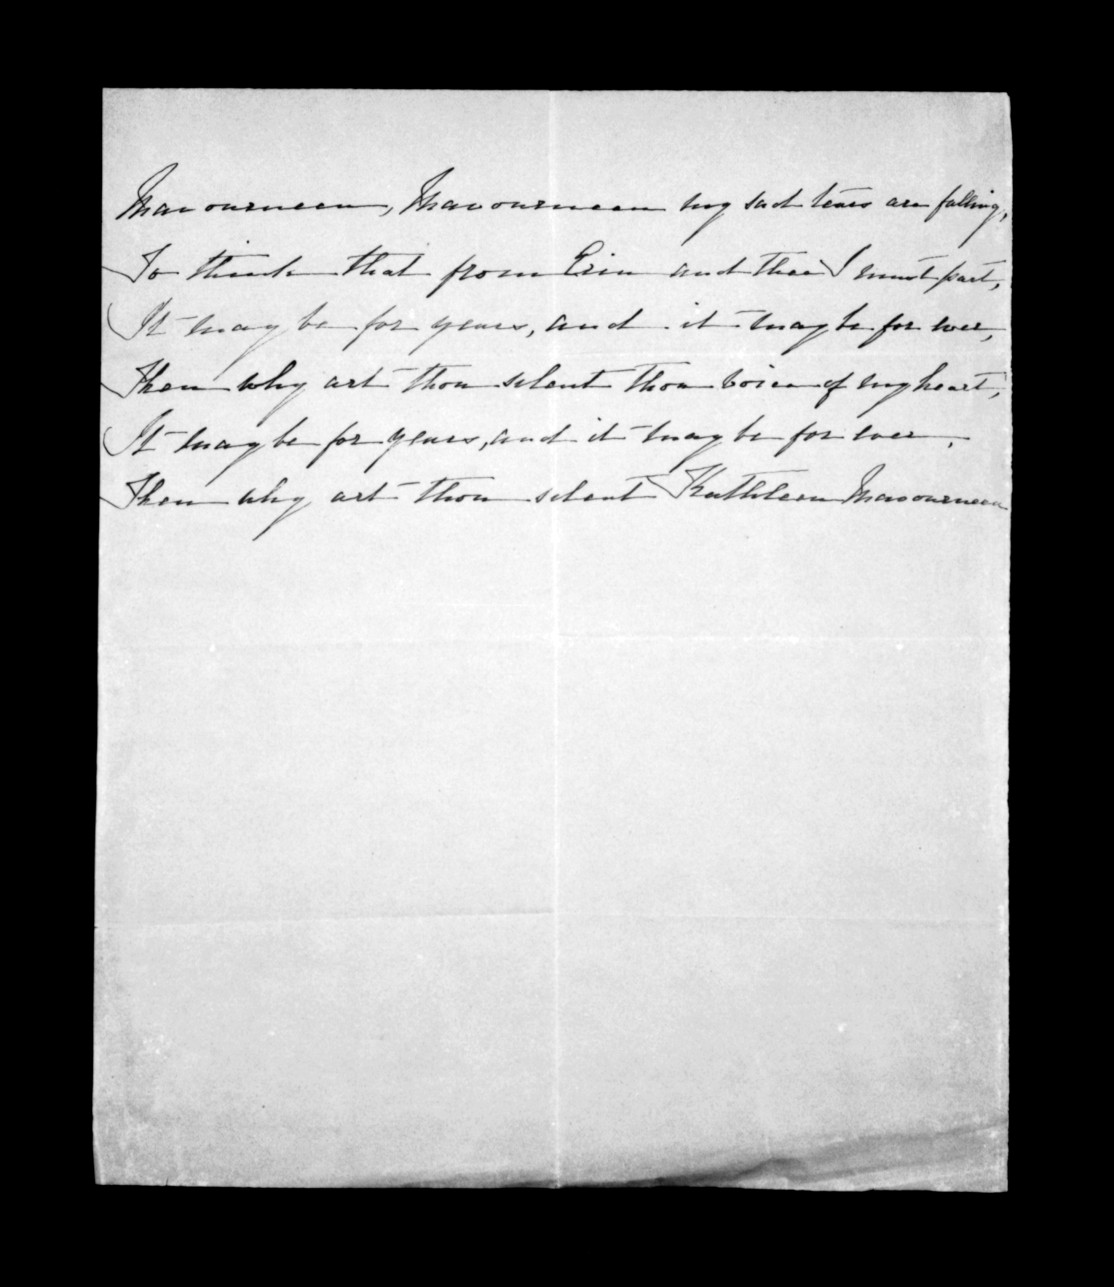 Mavourneen, Mavourneen my sad tears are falling,
To think that from Erin and thee I must part,
It may be for years, and it may be for ever,
Then why art thou silent thou voice of my heart,
It may be for years, and it may be for ever,
Then why art thou silent Kathleen Mavourneen